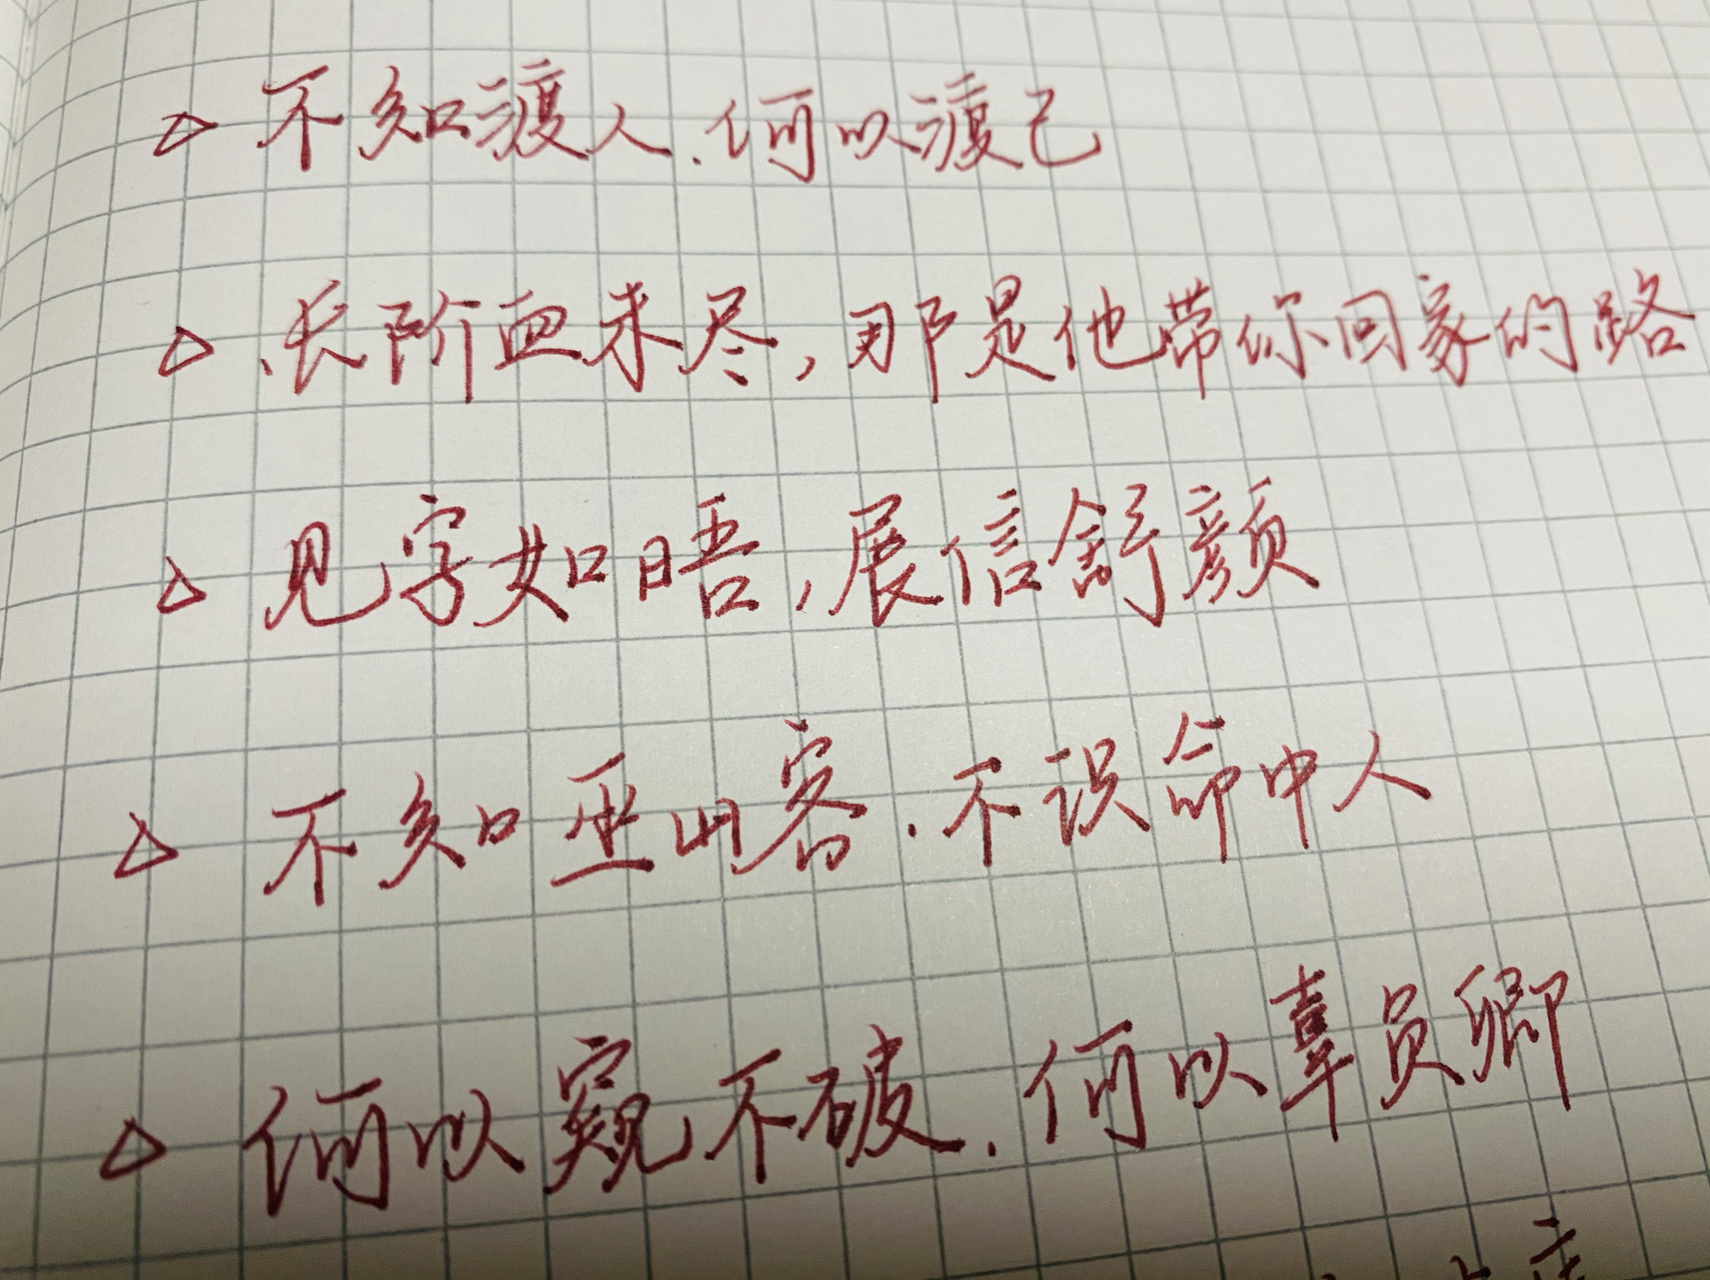 ▷ 不知渡人.何以渡己
▷ .长阶血未尽,那是他带你回家的路
▷ 见字如晤,展信舒颜
▷ 不知巫山客.不识命中人
▷ 何以窥不破.何以辜负卿